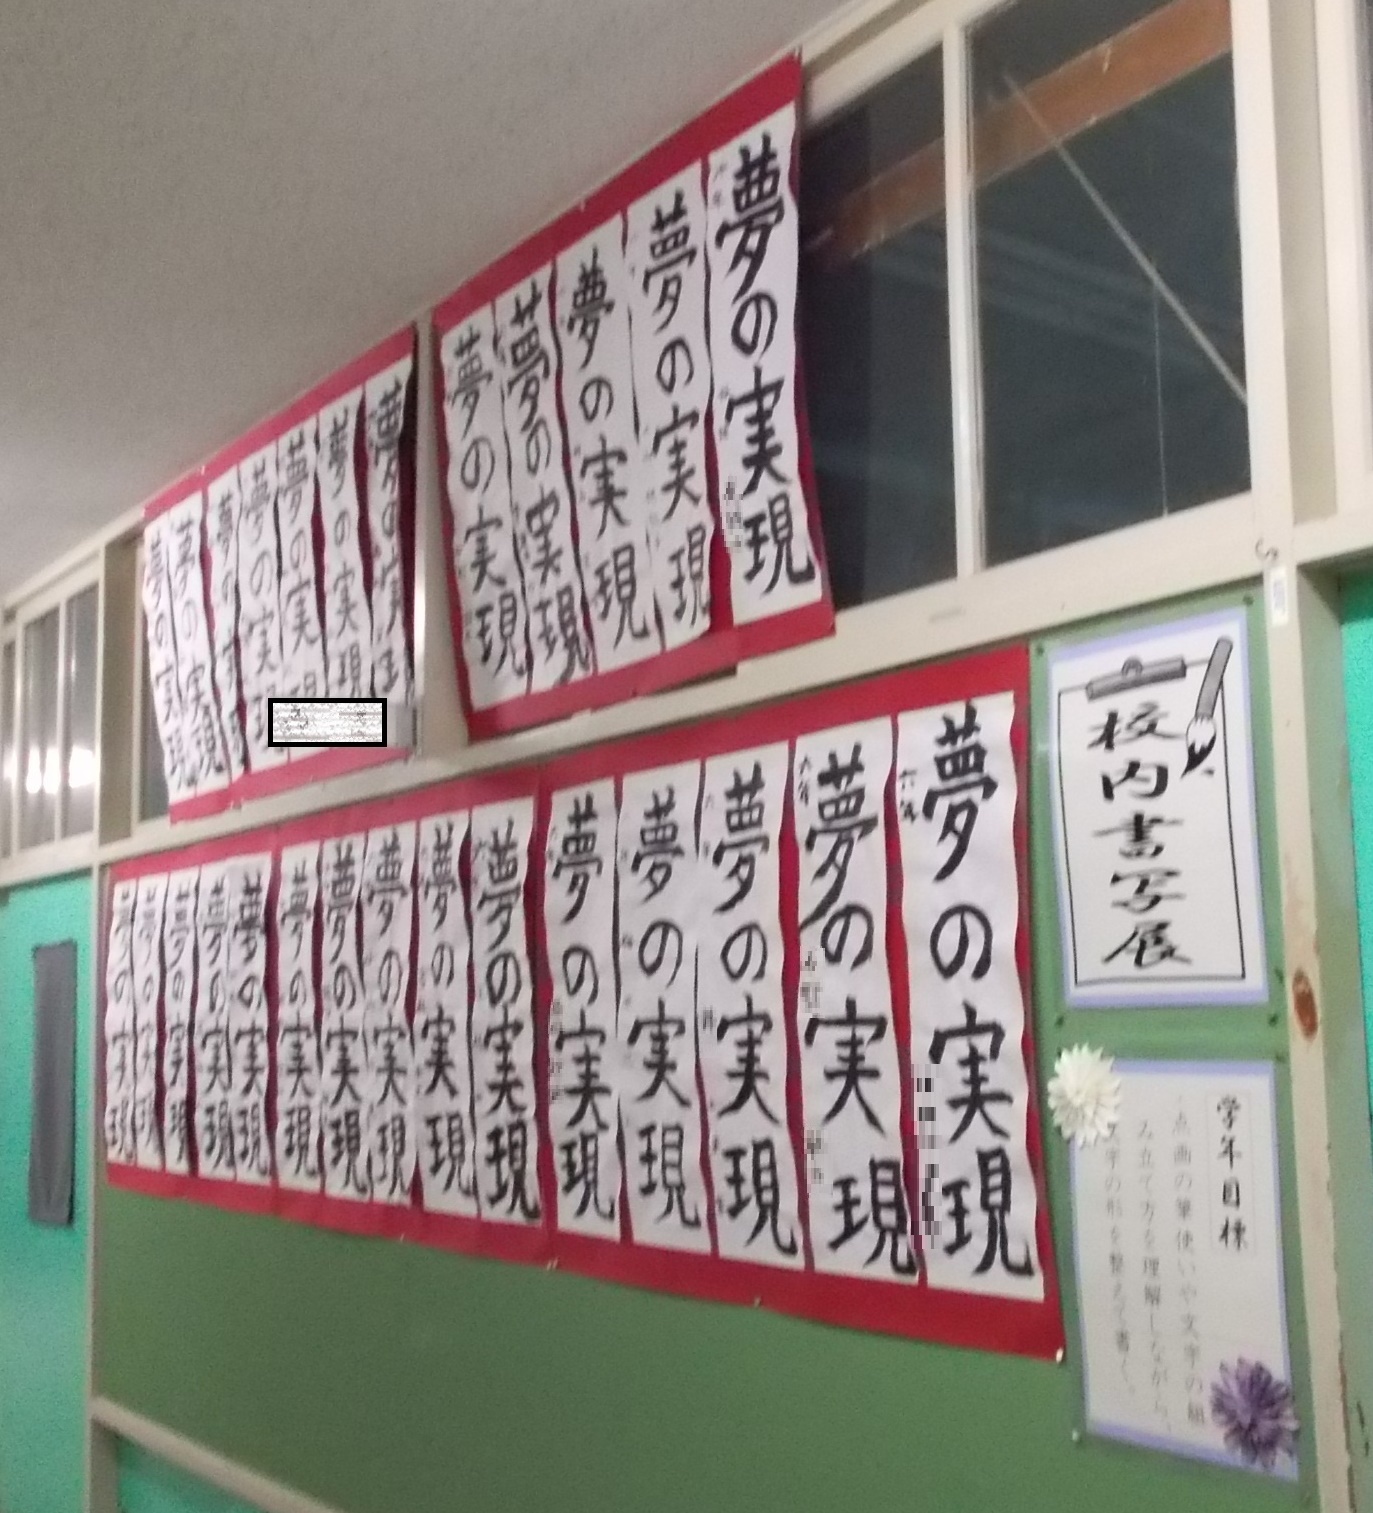 校内書写展
学年目標
点画の筆使いや文字の組
み立て方を理解しながら、
文字の形を整えて書く。
夢の実現
夢の実現
夢の実現
夢の実現
夢の実現
夢の実現
夢の実現
夢の実現
夢の実現
夢の実現
夢の実現
夢の実現
夢の実現
六年
夢の実現
六年
夢の実現
夢の実現
夢の実現
夢の実現
夢の実現
夢の実現
夢の実現
夢の実現
夢の実現
夢の実現
夢の実現
夢の実現
夢の実現
夢の実現